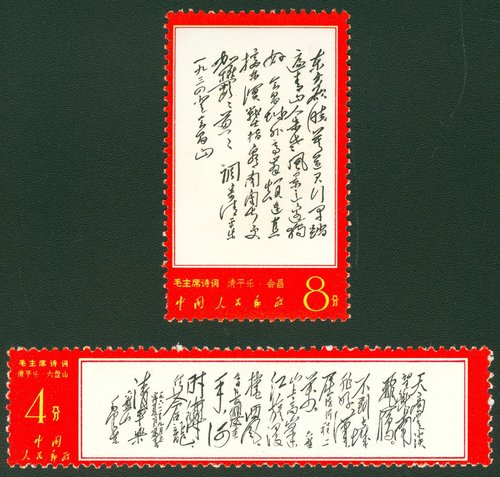 东方欲晓莫道君行早踏
遍青山人未老风景这边独
好会昌城外高峰颠连直
接东溟战士指看南粤更
加郁郁葱葱 调寄清平乐
一九三四 会昌山
毛主席诗词 清平乐·会昌
中国人民邮政
8分
毛主席诗词
清平乐·六盘山
4分
中国
人民邮政
天高云淡
望断南
飞雁
不到长城
非好汉
屈指行程二
万 六盘
山上高峰
红旗漫
卷西风
今日长缨
在手何
时缚住
苍龙
清平乐
毛泽东